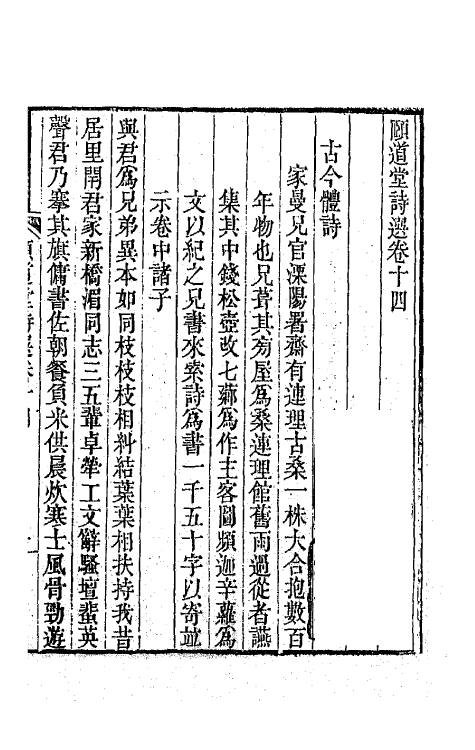 頤道堂詩選卷十四
古今體詩
家曼兄官溧陽署齋有連理古桑一株大合抱數百
年物也兄葺其旁屋為桑連理館舊雨過從者讌
集其中錢松壺改七薌為作主客圖頻迦辛蘿為
文以紀之兄書來索詩為書一千五十字以寄並
示卷中諸子
與君為兄弟異本如同枝枝枝相糾結葉葉相扶持我昔
居里閈君家新橋湄同志三五輩卓犖工文辭騷壇蜚英
聲君乃搴其旗傭書佐朝餐負米供晨炊寒士風骨勁遊
頤道堂詩選卷十四 一